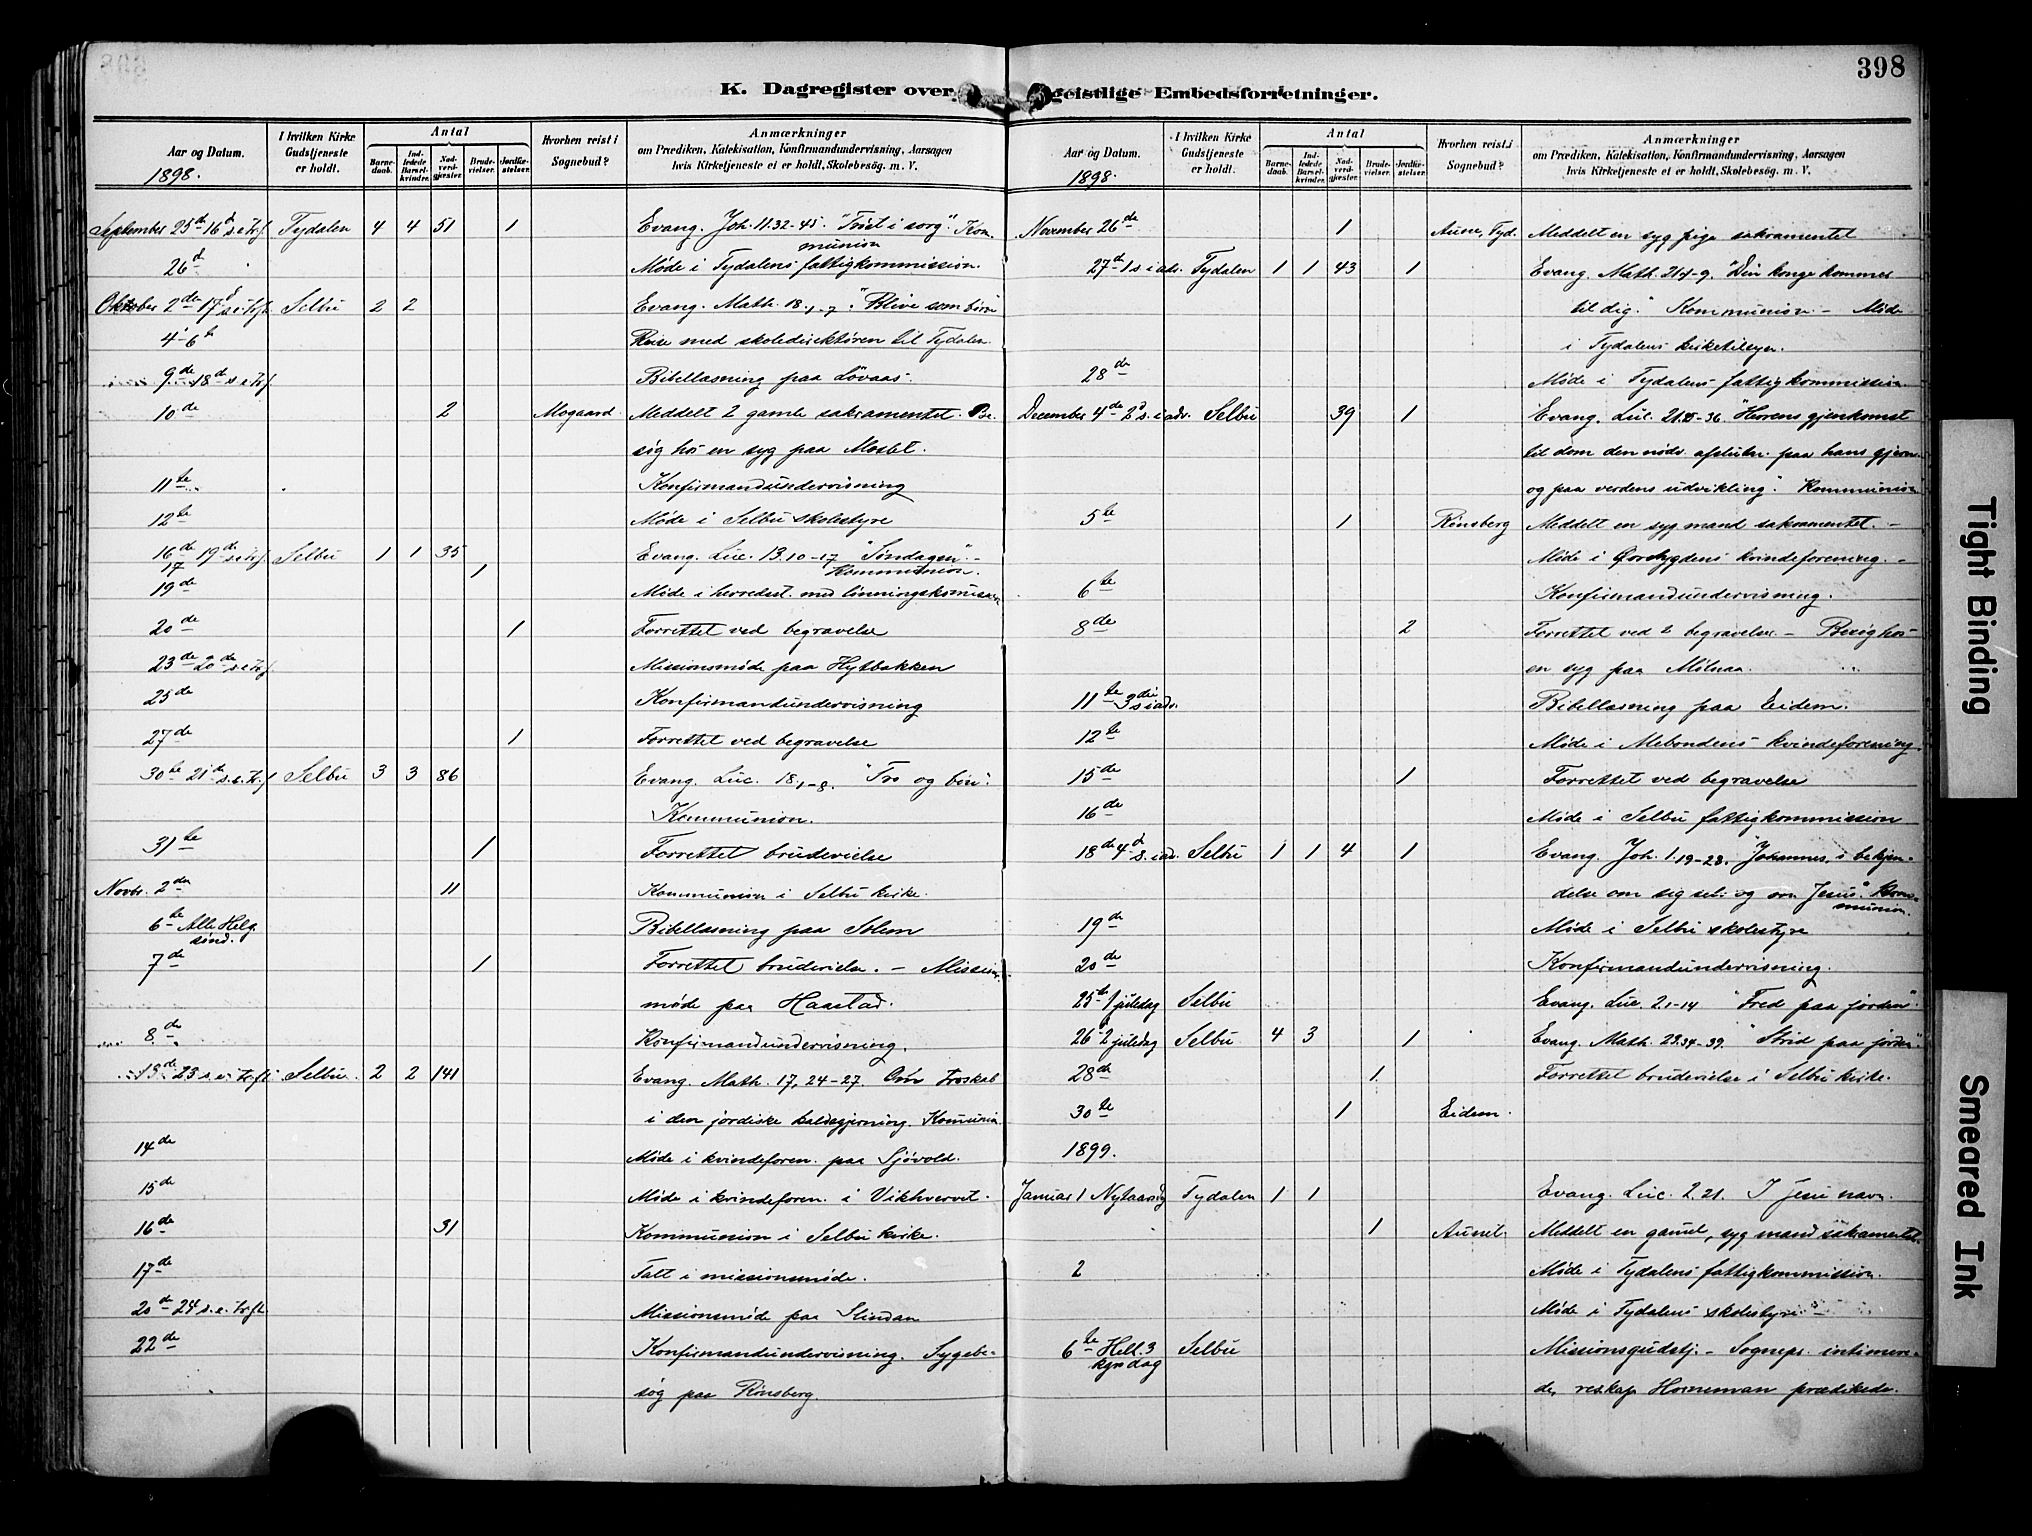 398
K. Dagregister over geistlige Embedsforretninger.
Aar og Datum.
1898.
I hvilken Kirke Gudstjeneste er holdt.
Antal
Barnedaab.
Indledede Barselkvinder.
Nadverdgjæster.
Brudevielser.
Jordfæstelser.
Hvorhen reist i Sognebud?
Anmærkninger
om Prædiken, Katekisation, Konfirmandundervisning, Aarsagen
hvis Kirketjeneste ei er holdt, Skolebesøg. m. V.
September 25de 16d s.e.trf. Tydalen 4 4 51 1 Evang. Joh. 11.32-45. "Trøst i sorg". Kommunion
26d Møde i Tydalens fattigkommission.
Oktober 2den 17d s.e.trft. Selbu 2 2 Evang. Math. 18.1-7. "Blive som børn"
4-6te Reise med skoledirektøren til Tydalen.
9de 18d s.e.trf. Bibellæsning paa Løvaas.
10de 2 Mogaard. Meddelt 2 gamle sakramentet. Be-
søg hos en syg paa Moslet.
11te Konfirmandundervisning
12te Møde i Selbu skolestyre
16de 19de s.e.trf. Selbu 1 1 35 Evang. Luc. 13.10-17 "Søndagen" -
17 1 Kommunion.
19de Møde i herredsst. med ligningskomission
20de 1 Forrettet ved begravelse
23de 20de s.e.trf. Missionsmøde paa Hytbakken
25de Konfirmandundervisning
27de 1 Forrettet ved begravelse
30te 21de s.e.trf. Selbu 3 3 86 Evang. Luc. 18.1-8. "Tro og bøn".
Kommunion.
31te 1 Forrettet brudevielse
Novbr. 2den 11 Kommunion i Selbu kirke.
6te Alle Helg. sønd. Bibellæsning paa Solem
7de 1 Forrettet brudevielse. - Missions-
møde paa Haastad.
8de Konfirmandundervisning.
13de 23 s.e.trft. Selbu. 2 2 141 Evang. Math. 17, 24-27. Om troskab
i den jordiske kaldsgjerning. Komunion
14de Møde i kvindeforen. paa Sjøvold.
15de Møde i kvindeforen. i Vikhvervet.
16de 31 Kommunion i Selbu kirke.
17de Talt i missionsmøde.
20de 24 s.e.trft. Missionsmøde paa Slindan
22de Konfirmandundervisning. Sygebe-
søg paa Rønsberg.
Aar og Datum.
1898.
I hvilken Kirke Gudstjeneste er holdt.
Antal
Barnedaab.
Indledede Barselkvinder.
Nadverdgjæster.
Brudevielser.
Jordfæstelser.
Hvorhen reist i Sognebud?
Anmærkninger
om Prædiken, Katekisation, Konfirmandundervisning, Aarsagen
hvis Kirketjeneste ei er holdt, Skolebesøg. m. V.
November 26de 1 Aune, Tyd. Meddelt en syg pige sakramentet
27de 1 s i adv. Tydalen 1 1 43 1 Evang. Math. 21.1-9. "Din konge kommer
til dig." Kommunion - Møde
i Tydalens kirketilsyn.
28de Møde i Tydalens fattigkommission
December 4de 2d s. i adv. Selbu 39 1 Evang. Luc. 21.25-36. "Herrens gjenkomst
til dom
og paa verdens udvikling". Kommunion
5te 1 Rønsberg Meddelt en syg mand sakramentet. -
Møde i Øverbygdens kvindeforening. -
6te Konfirmandundervisning.
8de 2 Forrettet ved 2 begravelse. - Besøg hos
en syg paa Mølnaa.
11te 3die s i adv. Bibellæsning paa Eidem.
12te Møde i Mebondens kvindeforening.
15de 1 Forrettet ved begravelse
16de Møde i Selbu fattigkommission
18de 4d s. i ad. Selbu 1 1 4 1 Evang. Joh. 1.19-28. "Johannes's bekjen-
delse om sig selv og om Jesus". Kommunion.
19de Møde i Selbu skolestyre
20de Konfirmandundervisning.
25te 1 juledag Selbu Evang. Luc. 2.1-14 "Fred paa jorden".
26 2 juledag Selbu 4 3 1 Evang. Math. 23.34-39. "Strid paa jorden"
28de 1 Forrettet brudevielse i Selbu kirke.
30te 1 Eidem.
1899.
Januar 1 Nytaarsdg Tydalen 1 1 Evang. Luc. 2.21. I Jesu navn.
1 Aunet. Meddelt en gamel, syg mand sakramentet.
2 Møde i Tydalens fattigkommission.
Møde i Tydalens skolestyre. -
6te Hell. 3 kgrs dag Selbu Missionsgudstj. - Sognepr. intimere-
de, reskap. Horneman prædikede.
Tight Binding
Smeared Ink